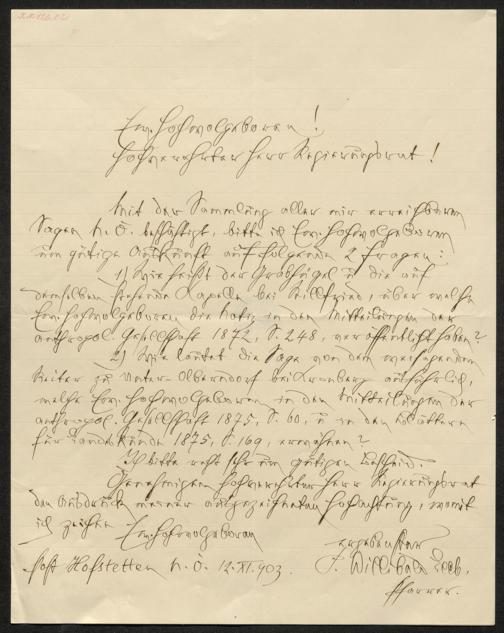 Ew. Hochwolgeboren!
Hochverehrter Herr Regierungsrat!
Mit der Sammlung aller mir erreichbaren
Sagen N. Ö. beschäftigt, bitte ich Ew. Hochwolgeboren
um gütige Auskunft auf folgende 2 Fragen:
1) Wie heißt der Grabhügel u die auf
demselben stehende Kapelle bei Stillfried, über welche
Ew. Hochwolgeboren die Notiz in den Mitteilungen der
anthropol. Gesellschaft 1872, S. 248, veröffentlicht haben?
2) Wie lautet die Sage von dem
Reiter zu Unter-Olberndorf bei Kronberg ausführlich,
welche Ew. Hochwolgeboren in den Mitteilungen der
anthropol. Gesellschaft 1875, S. 60, u in den Blättern
für Landeskunde 1875, S. 169, erwähnen?
Ich bitte recht sehr um gütigen Bescheid.
Genehmigen hochverehrter Herr Regierungsrat
den Ausdruck meiner ausgezeichneten Hochachtung, womit
ich zeichne Ew. Hochwolgeboren
ergebenster
Post Hofstetten N. Ö. 12. XI. 903. P. Willibald Leeb,
Pfarrer.